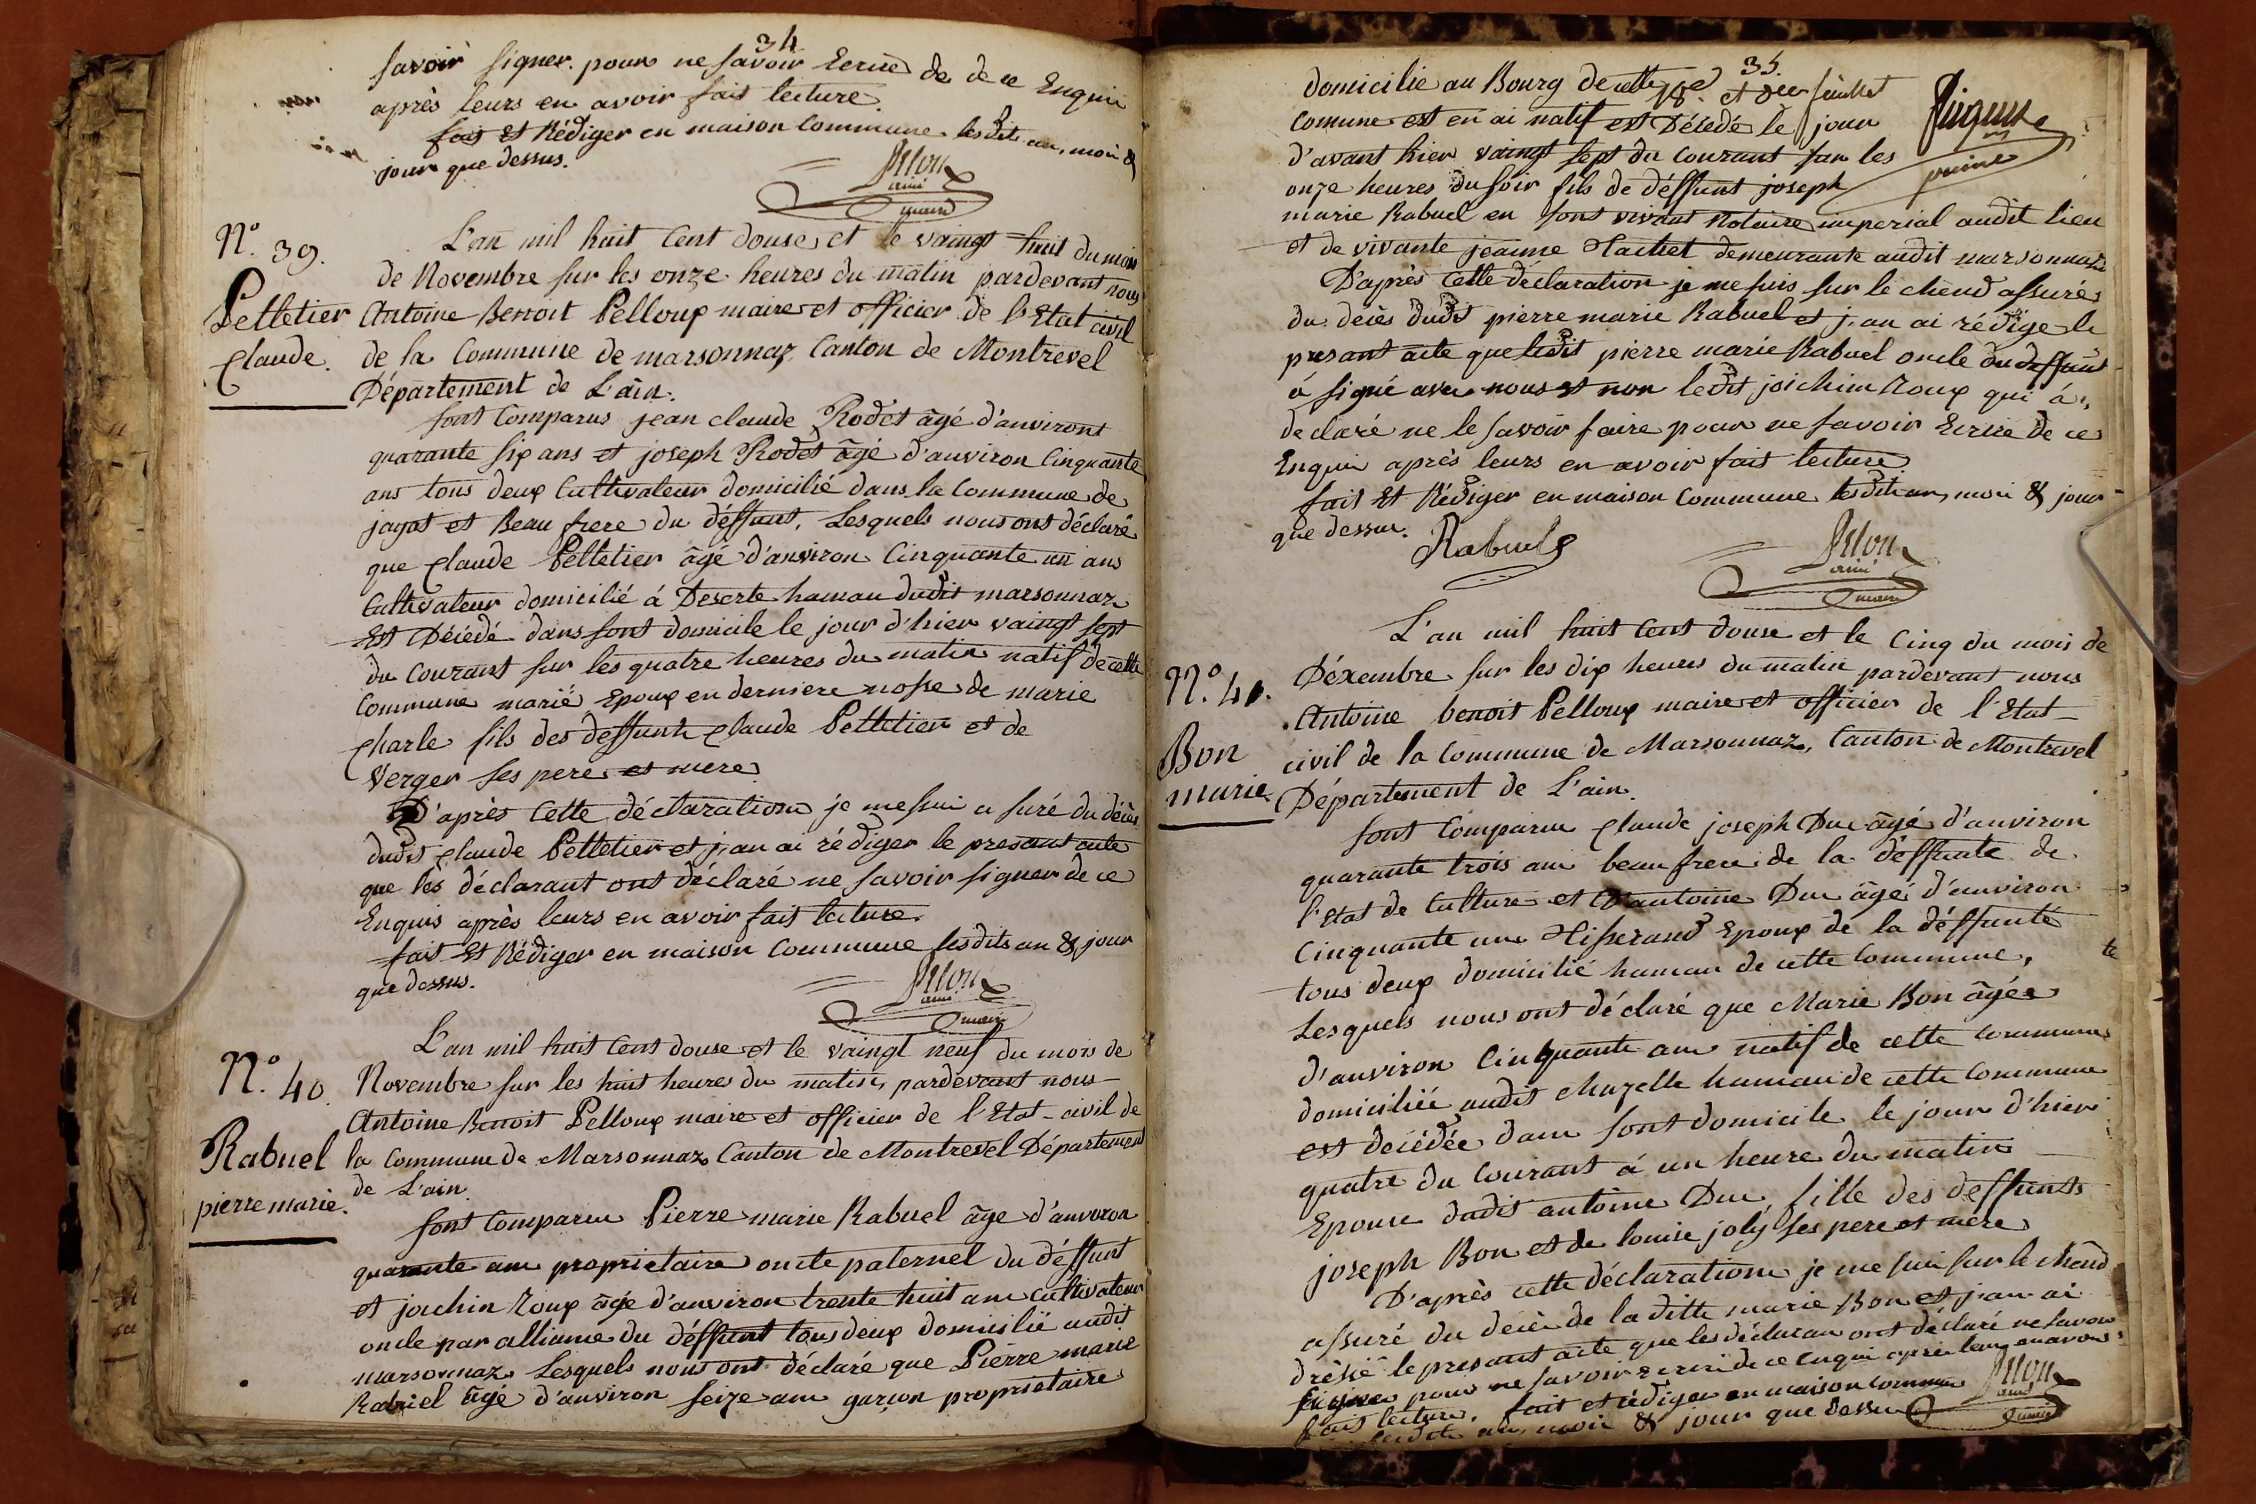 34
savoir signer. pour ne savoir Ecrire de de ce Enquis
après leurs en avoir fait lecture.
fait Et Rédiger en maison Commune lesdits an, mois &
jour que dessus.
maire
N.° 39.
Pelletier
Claude.
L'an mil huit Cent douse et le vaingt huit du mois
de Novembre sur les onze heures du matin pardevant nous
Antoine Benoit Pelloux maire et officier de l'Etat civil
de la Commune de marsonnaz Canton de Montrevel
Département de L'ain.
sont Comparus jean claude Rodet âgé d'anviront
quarante six ans et joseph Rodet âgé d'anviron Cinquante
ans tous deux Cultivateur domicilié dans la Commune de
jayat et Beau frere du déffunt, Lesquels nous ont déclaré
que Claude Pelletier âgé d'anviron Cinquante un ans
Cultivateur domicilié á Deserte hamau dudit marsonnaz
Est Décédé dans sont domicile le jour d'hier vaingt sept
du Courant sur les quatre heures du matin natif de cette
Commune marié Epoux en derniere nosse de marie
Charle fils des deffunts Claude Pelletier et de
Verger ses pere et mere.
D'après Cette déclaration je me suis a suré du décès
dudit Claude Pelletier et j,an ai rédiger le presant acte
que les déclarant ont déclaré ne savoir signer de ce
Enquis après leurs en avoir fait lecture.
fait Et Rédiger en maison Commune lesdits an & jour
que dessus.
maire
N.° 40.
Rabuel
pierre marie.
L'an mil huit Cent douse et le vaingt neuf du mois de
Novembre sur les huit heures du matin, pardevant nous
Antoine Benoit Pelloux maire et officier de l'Etat-civil de
la Commune de Marsonnaz Canton de Montrevel Département
de L'ain.
sont Comparus Pierre marie Rabuel âge d'anviron
quarante ans proprietaire oncle paternel du déffunt
et joichin Roux âgé d'anviron trente huit ans Cultivateur
oncle par alliance du déffunt tous deux domicilié audit
marsonnaz Lesquels nous ont déclaré que Pierre marie
Rabuel âgé d'anviron seize ans garçon proprietaire
35.
18.e et der feuillet
domicilie au Bourg de cette
Comune est en ai natif est Décédé le jour
d'avant hier vaingt sept du Courant sur les
onze heures du soir fils de déffunt joseph
marie Rabuel en sont vivant Notaire imperial audit lieu
et de vivante jeanne demeurante audit marsonnaz
D'après Cette déclaration je me suis sur le chend assurés
du décès dudit pierre marie Rabuel et j,an ai rédige le
presant acte que ledit pierre marie Rabuel oncle du deffunt
á signé avec nous et non ledit joichim Roux qui á
declaré ne le savoir faire pour ne savoir Ecrire de ce
Enquis après leurs en avoir fait lecture
fait Et Rédiger en maison Commune lesdits an, mois & jour
que dessus.
Rabuel
maire
N.° 41.
Bon
marie
L'an mil huit Cent douse et le Cinq du mois de
Déxembre sur les dix heures du matin pardevant nous
Antoine benoit Pelloux maire et officier de l'Etat-
civil de la Commune de Marsonnaz, Canton de Montrevel
Département de L'ain.
sont Comparus Claude joseph Duc âgé d'anviron
quarante trois ans beau frere de la deffunte de
l'Etat de Culture et d'antoine Duc âgé d'anviron
Cinquante ans Tisserand Epoux de la déffunte
tous deux domicilié hamau de cette Commune,
Lesquels nous ont déclaré que Marie Bon âgée
d'anviron Cinquante ans natif de cette commune
domiciliée audit Chazelle hamau de cette Commune
est décédée dans sont domicile le jour d'hier
quatre du Courant á un heure du matin
Epouse dudit antoine Duc fille des deffunts
joseph Bon et de louise joly ses pere et mere
D'après cette déclaration je me suis sur le chend
assuré du décès de la ditte marie Bon et j,an ai
dressé le presant acte que les déclarans ont déclaré ne savoir
signer pour ne savoir Ecrire de ce Enquis après leur en avoir
fait lecture. fait et rédiger en maison Commune
lesdits an, mois & jour que dessus
maire